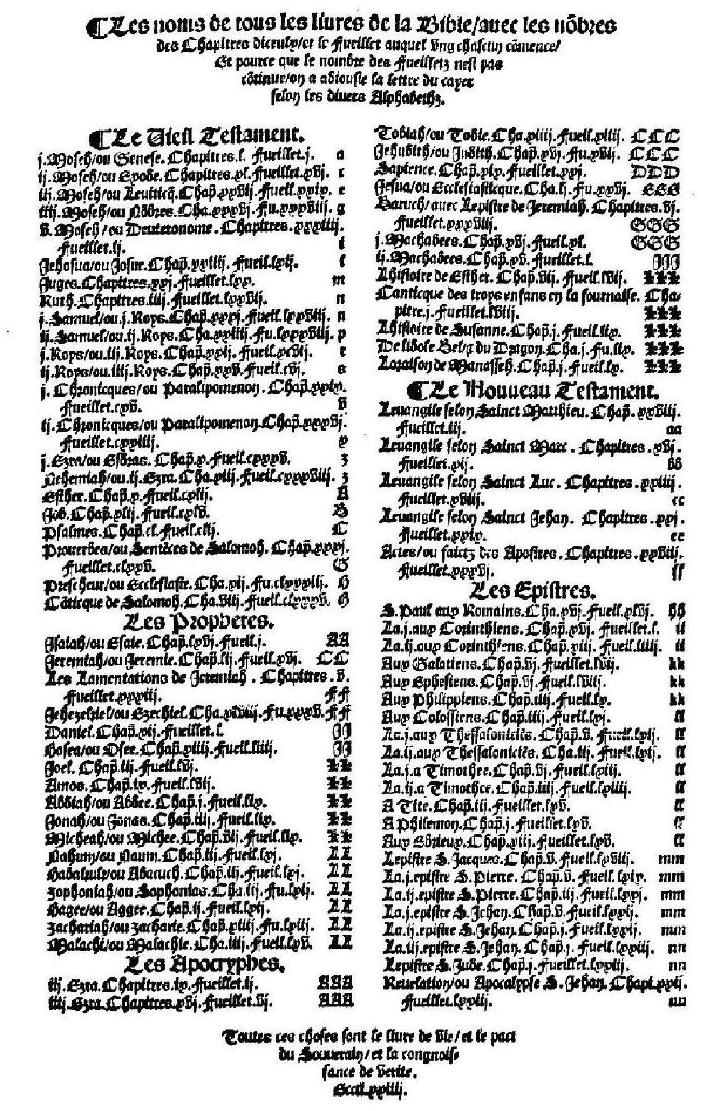 ¶Les noms de tous les liures de la Bible/auec les nõbres
des Chapitres diceulx/et le fueillet auquel vng chascun cõmence/
Et pource que le nombre des fueilletz nest pas
cõtinue/on a adiouste la lettre du cayer
selon les diuers Alphabethz.
¶Le Viel Testament.
j.Moseh/ou Genese.Chapitres.l. Fueillet.j. a
ij.Moseh/ou Exode.Chapitres.xl.Fueillet.xv. c
iij.Moseh/ou Leuiticq.Chap.xxvij.Fueil.xxix. e
iiij.Moseh/ou Nõbres.Cha.xxxvj.Fu.xxxviij. g
v.Moseh/ou Deuteronome.Chapitres.xxxiiij.
Fueillet.lj. i
Jehosua/ou Josue.Chap.xxiiij.Fueil.lxij. l
Juges.Chapitres.xxj.Fueillet.lxx. m
Ruth.Chapitres.iiij.Fueillet.lxxviij. n
j.Samuel/ou j.Roys.Chap.xxxj.Fueil.lxxix. n
ij.Samuel/ou ij.Roys.Cha.xxiiij.Fu.lxxxviij. p
j.Roys/ou.iij.Roys.Chap.xxij.Fueil.xcvij. r
ij.Roys/ou.iiij.Roys.Chap.xxv.Fueil.cvj. s
j.Chronicques/ou Paralipomenon.Chap.xxix.
Fueillet.cxv. v
ij.Chronicques/ou Paralipomenon.Chap.xxxvj.
Fueillet.cxxiiij. y
j.Ezra/ou Esdras.Chap.x.Fueil.cxxxv. z
Nehemiah/ou.ij.Ezra.Cha.xiij.Fueil.cxxxviij. z
Esther.Chap.x.Fueil.cxlij. A
Job.Chap.xlij.Fueil.cxlv. B
Psalmes.Chap.cl.Fueil.clij. C
Prouerbes/ou Sentẽces de Salomoh.Chap.xxxj.
Fueillet.clxxv. G
Prescheur/ou Ecclesiaste.Cha.xij.Fu.clxxxiij. H
Cãtique de Salomoh.Cha.viij.Fueil.clxxxv. H
Les Prophetes.
Jsaiah/ou Esaie.Chap.lxvj.Fueil.j. AA
Jeremiah/ou Jeremie.Chap.lij.Fueil.xvj. CC
Les Lamentations de Jeremiah . Chapitres.v.
Fueillet.xxxiij. FF
Jehezekel/ou Ezechiel.Cha.xlviij.Fu.xxxv. FF
Daniel.Chap.xij.Fueillet.l. JJ
Hosea/ou Osee.Chap.xiiij.Fueil.liiij. JJ
Joel.Chap.iij.Fueil.lvj. kk
Amos.Chap.ix.Fueil.lvij. kk
Abdiah/ou Abdee.Chap.j.Fueil.lix. kk
Jonah/ou Jonas.Chap.iiij.Fueil.lix. kk
Micheah/ou Michee.Chap.vij.Fueil.lix. kk
Nahum/ou Naum.Chap.iij.Fueil.lxj. LL
Habakuk/ou Abacuch.Chap.iij.Fueil.lxj. LL
Zophoniah/ou Sophonias.Cha.iij.Fu.lxij. LL
Haggee/ou Aggee.Chap.ij.Fueil.lxij. LL
Zachariah/ou Zacharie.Chap.xiiij.Fu.lxiij. LL
Malachi/ou Malachie.Cha.iiij.Fueil.lxv. LL
Les Apocryphes.
iij.Ezra.Chapitres.ix.Fueillet.j. AAA
iiij.Ezra.Chapitres.xvj.Fueillet.vj. AAA
Tobiah/ou Tobie.Cha.xiiij.Fueil.xiiij. CCC
Jehudith/ou Judith.Chap.xvj.Fu.xvij. CCC
Sapience.Chap.xix.Fueillet.xxj. DDD
Jesua/ou Ecclesiasticque.Cha.lj.Fu.xxvj. EEE
Baruch/auec Lepistre de Jeremiah.Chapitres.vj.
Fueillet.xxxviij. GGG
j.Machabees.Chap.xvj.Fueil.xl. GGG
ij.Machabees.Chap.xv.Fueillet.l. JJJ
Lhistoire de Esther.Chap.vij.Fueil.lvij. kkk
Canticque des troys enfans en la fournaise. Cha
pitre.j.Fueillet.lviij. kkk
Lhistoire de Susanne.Chap.j.Fueil.lix. kkk
De lidole Bel/et du Dragon.Cha.j.Fu.lix. kkk
Loraison de Manasseh.Chap.j.Fueil.lx. kkk
¶Le Nouueau Testament.
Leuangile selon Sainct Matthieu.Chap.xxviij.
Fueillet.iij. aa
Leuangile selon Sainct Marc . Chapitres.xvj.
Fueillet.xij. bb
Leuangile selon Sainct Luc . Chapitres.xxiiij.
Fueillet.xviij. cc
Leuangile selon Sainct Jehan. Chapitres.xxj.
Fueillet.xxix. ee
Actes/ou faictz des Apostres. Chapitres.xxviij.
Fueillet.xxxvj. ff
Les Epistres.
S.Paul aux Romains.Cha.xvj.Fueil.xlvj. hh
La.j.aux Corinthiens.Chap.xvj.Fueillet.l. ii
La.ij.aux Corinthiens.Chap.xiij.Fueil.liiij. ii
Aux Galatiens.Chap.vj.Fueillet.lvij. kk
Aux Ephesiens.Chap.vj.Fueil.lviij. kk
Aux Philippiens.Chap.iiij.Fueil.lx. kk
Aux Colossiens.Chap.iiij.Fueil.lxj. ll
La.j.aux Thessalonicẽs.Chap.v.Fueil.lxij. ll
La.ij.aux Thessalonicẽs.Cha.iij.Fueil.lxij. ll
La.j.a Timothee.Chap.vj.Fueil.lxiij. ll
La.ij.a Timothee.Chap.iiij.Fueil.lxiiij. ll
A Tite.Chap.iij.Fueillet.lxv. ll
A Philemon.Chap.j.Fueillet.lxv. ll
Aux Ebrieux.Chap.xiij.Fueillet.lxv. ll
Lepistre S.Jacques.Chap.v.Fueil.lxviij. mm
La.j.epistre S.Pierre.Chap.v.Fueil.lxix. mm
La.ij.epistre S.Pierre.Chap.iij.Fueil.lxxj. mm
La.j.epistre S.Jehan.Chap.v.Fueil.lxxij. mm
La.ij.epistre S.Jehan.Chap.j.Fueil.lxxiij. mm
La.iij.epistre S.Jehan.Chap.j.Fueil.lxxiij. nn
Lepistre S.Jude.Chap.j.Fueillet.lxxiij. nn
Reuelation/ou Apocalypse S.Jehan.Chap.xxij.
Fueillet.lxxiij. nn
Toutes ces choses sont le liure de vie/et le pact
du Souuerain/et la congnois-
sance de verite.
Eccl.xxiiij.